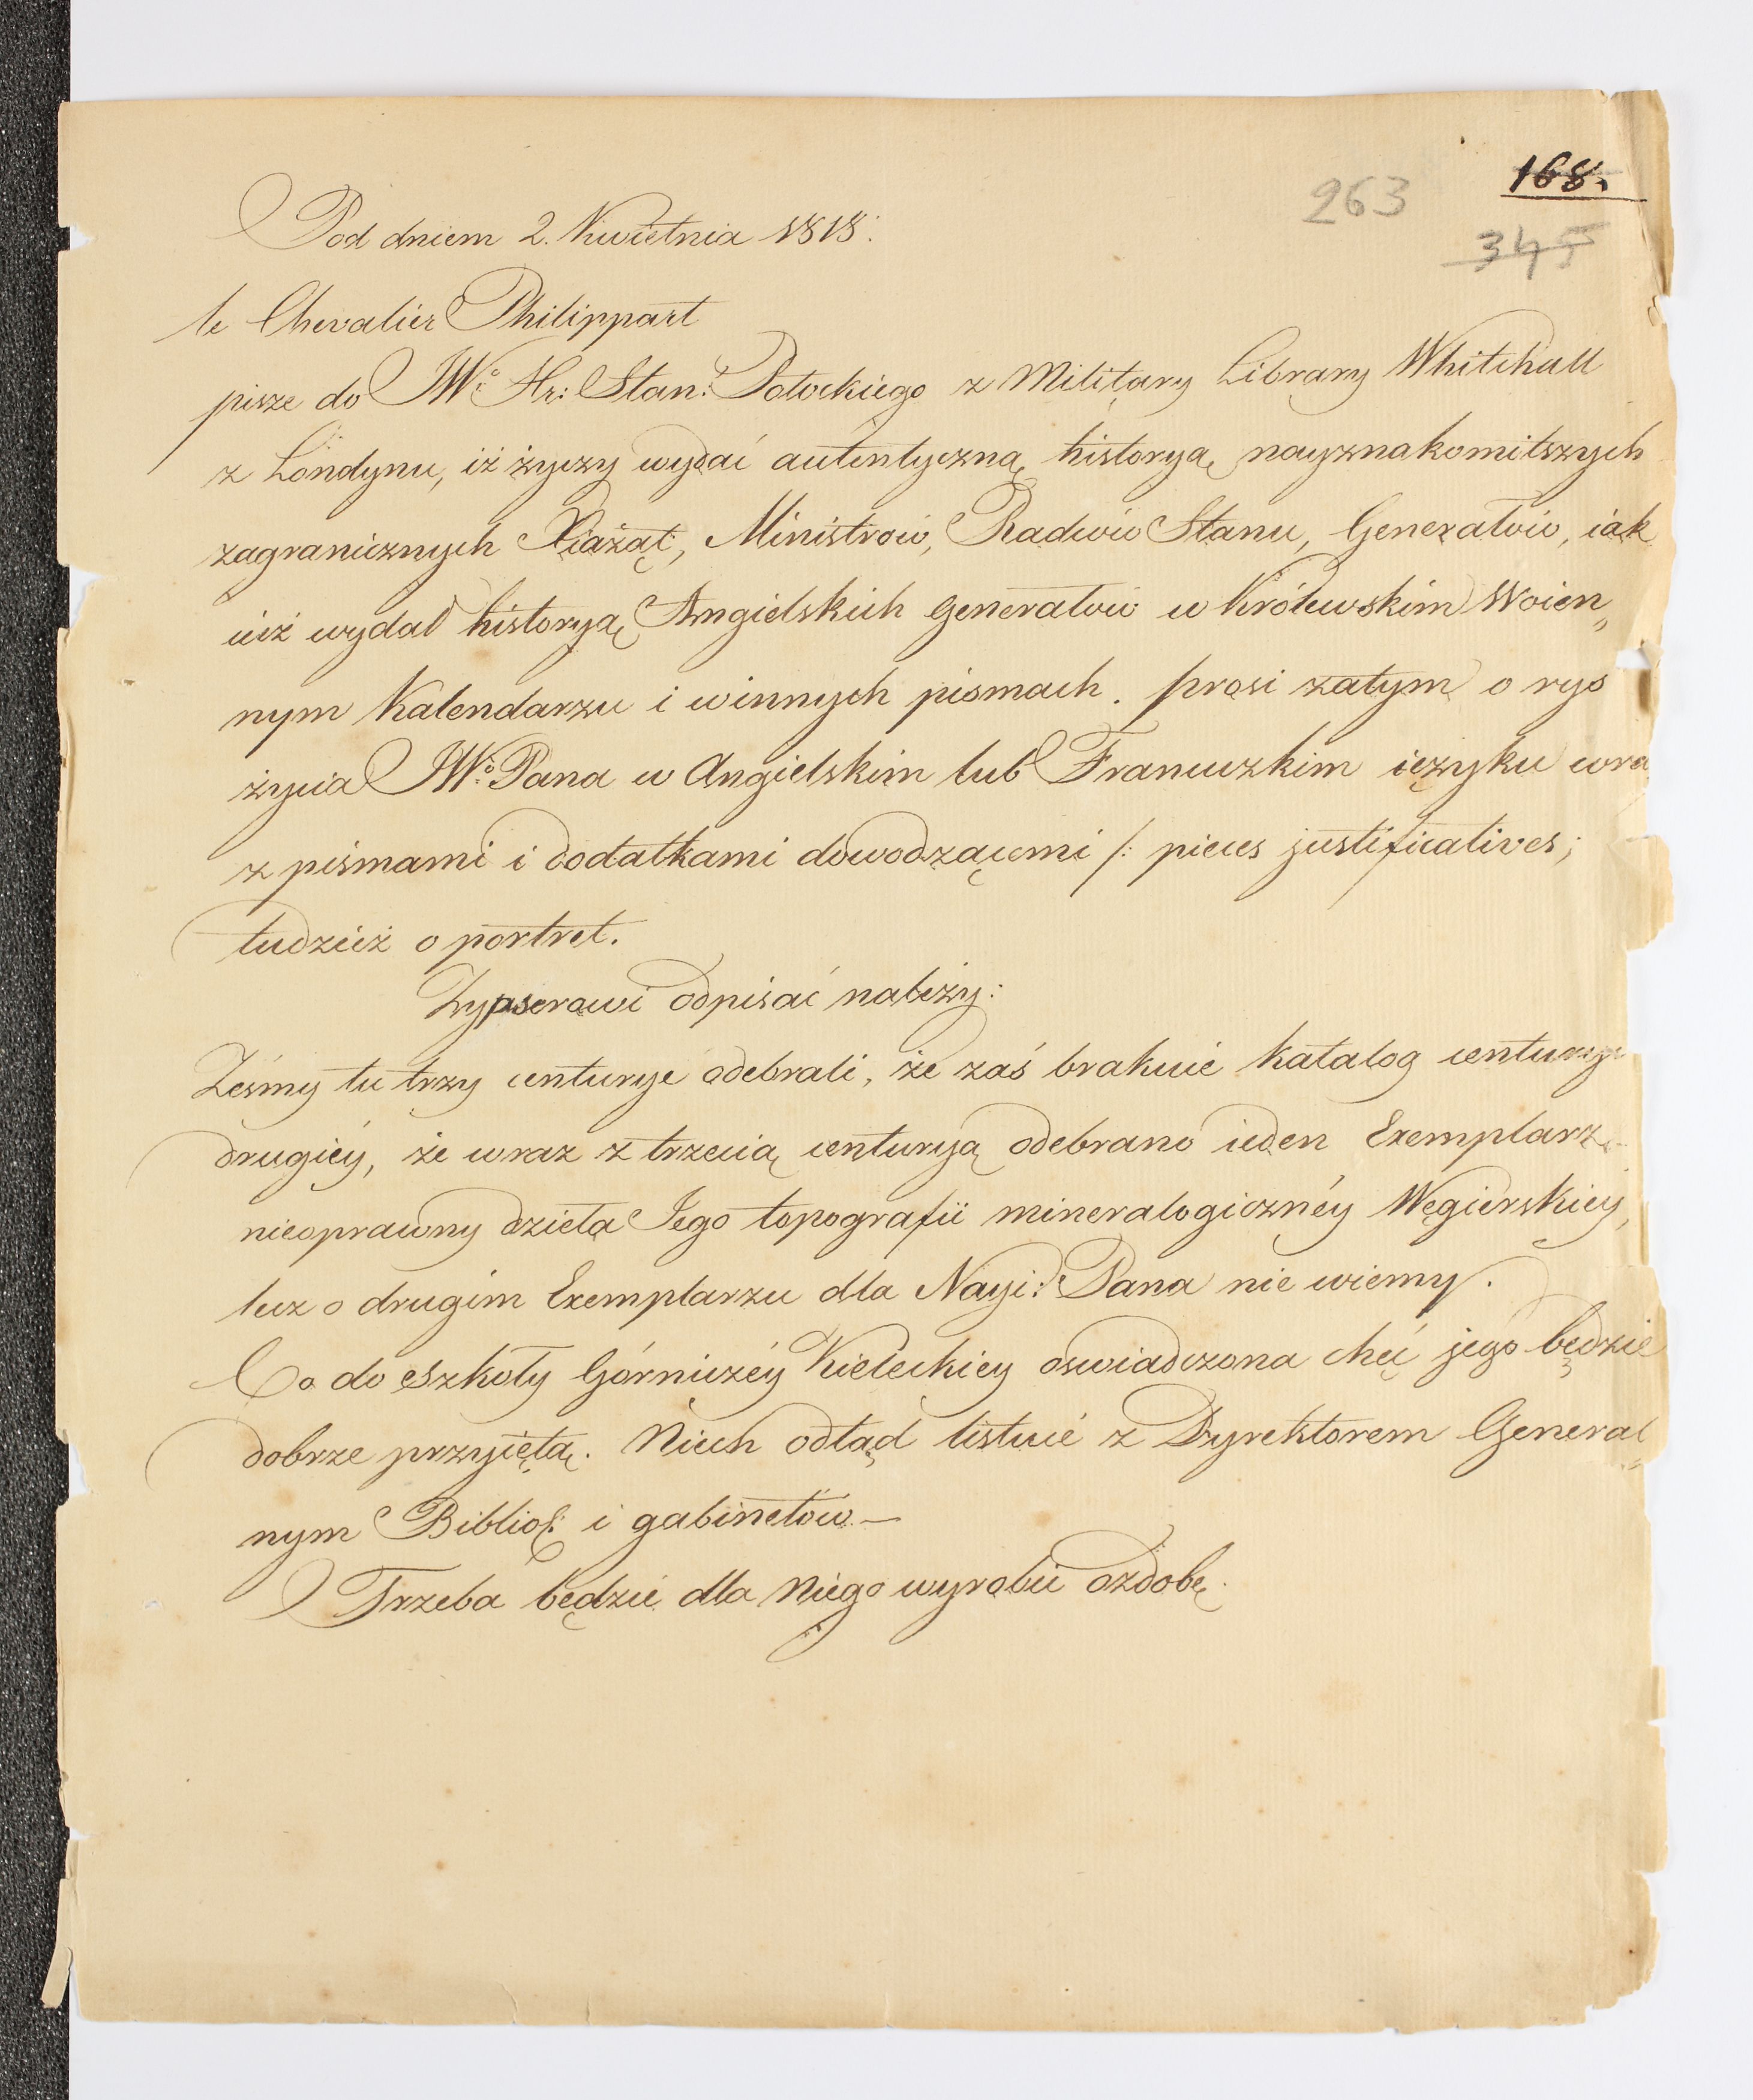 168.
263
345
Pod dniem 2. Kwietnia 1818.
le Chevalier Philippart
pisze do JWo Hr: Stan: Potockiego z Military Library Whitehall
z Londynu, iż życzy wydać autentyczną historyą nayznakomitszych
zagranicznych Xiążąt, Ministrów, Radców Stanu, Generałów, iak
iuż wydał historyą Angielskich generałów w Królewskim Woien„
nym Kalendarzu i winnych pismach. prosi zatym o rys
życia JWo Pana w Angielskim lub Francuzkim ięzyku wra
z pismami i dodatkami dowodzącemi /: pieces justificatives;
tudzież o portret.
Zypserowi odpisać należy:
Żeśmy tu trzy centurye odebrali, że zaś brakuie katalog centuryi
drugiéy, że wraz z trzecią centuryą odebrano ieden Exemplarz
nieoprawny dzieła Jego topografii mineralogicznéy Węgierskiey,
lecz o drugim Exemplarzu dla Nayi: Pana nie wiemy.
Co do szkoły Górniczéy Kieleckiey oswiadczona chęć jego będzie
dobrze przyiętą. Niech odtąd listuie z Dyrektorem General„
nym Bibliot: i gabinetów.—
Trzeba będzie dla Niego wyrobić ozdobę.